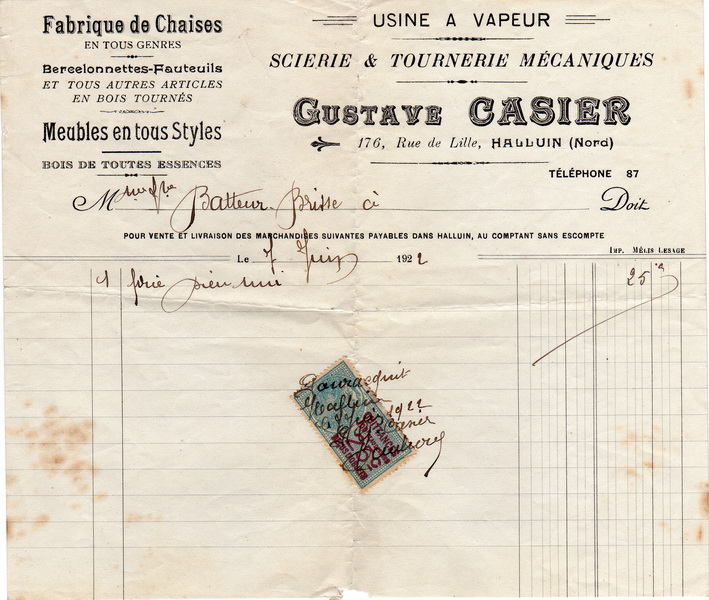 Fabrique de Chaises
EN TOUS GENRES
Bercelonnettes-Fauteuils
ET TOUS AUTRES ARTICLES
EN BOIS TOURNÉS
Meubles en tous Styles
BOIS DE TOUTES ESSENCES
USINE A VAPEUR
SCIERIE & TOURNERIE MÉCANIQUES
GUSTAVE CASIER
176, Rue de Lille, HALLUIN (Nord)
TÉLÉPHONE 87
M Batteur Brisse à Doit
POUR VENTE ET LIVRAISON DES MARCHANDISES SUIVANTES PAYABLES DANS HALLUIN, AU COMPTANT SANS ESCOMPTE
IMP. MÉLIS LESAGE
Le 7 Juin 1922
1 25
Pour acquit
Halluin
1922